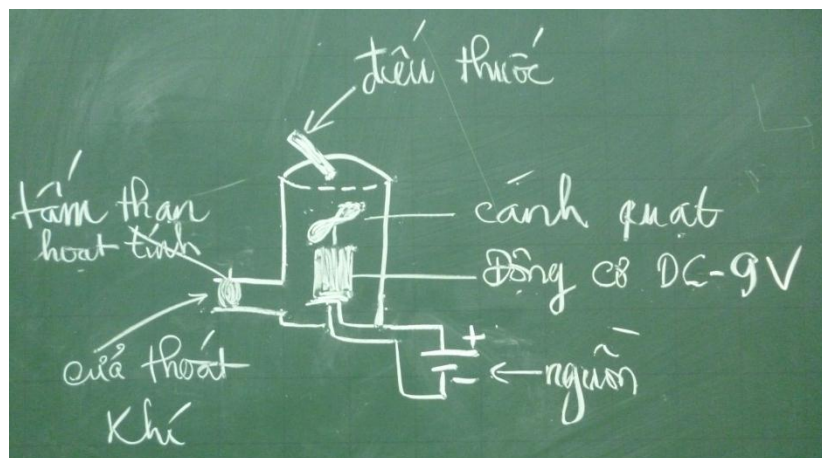 điếu thuốc
tấm than
hoạt tính
cánh quạt
Động cơ DC-9V
+
-
nguồn
cửa thoát
Khí